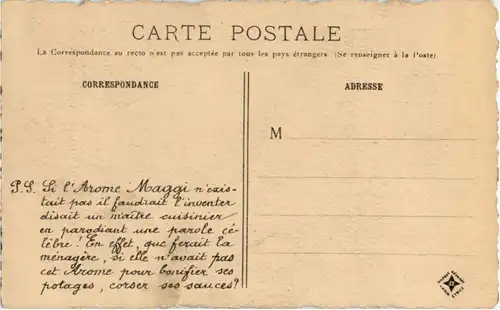 CARTE POSTALE
La Correspondance au recto n'est pas acceptée par tous les pays étrangers. (Se renseigner à la Poste).
CORRESPONDANCE
ADRESSE
M
P.S. Si l'Arome Maggi n'exis-
tait pas il faudrait l'inventer
disait un maître cuisinier
en parodiant une parole cé-
lèbre! En effet, que ferait la
ménagère, si elle n'avait pas
cet Arome pour bonifier ses
potages, corser ses sauces?